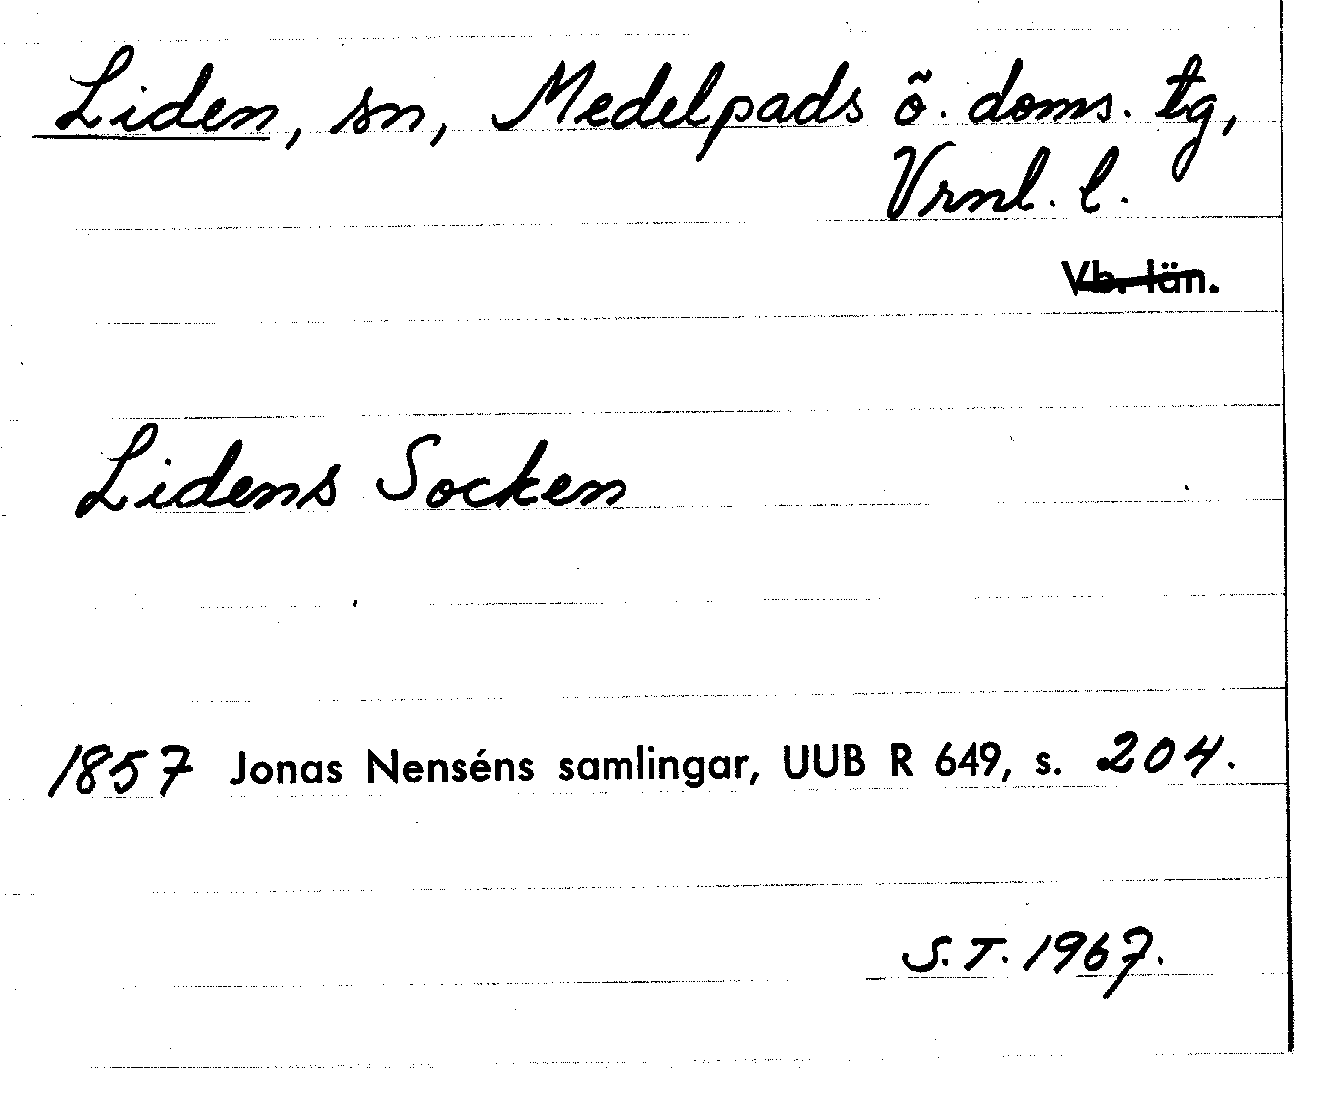 Liden, sn, Medelpads ö. doms. tg,
Vrnl. l.
Vb. län.
Lidens Socken
1857 Jonas Nenséns samlingar, UUB R 649, s. 204.
S.T. 1967.